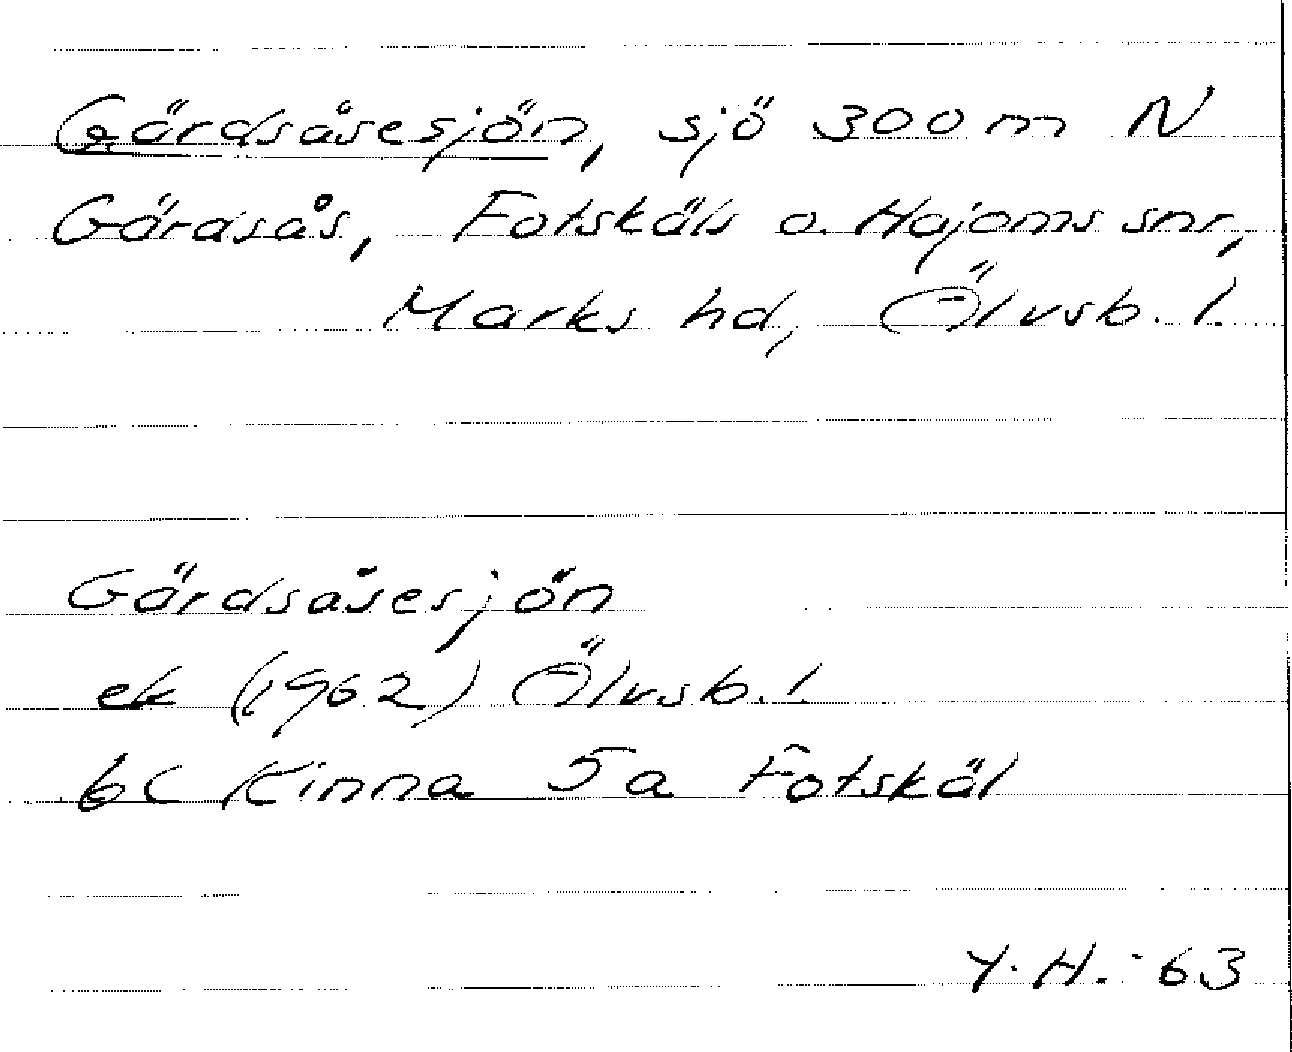 Gärdsåsesjön, sjö 300 m N
Gärdsås, Fotskäls o. Hajoms snr,
Marks hd, Älvsb. l.
Gärdsåsesjön
ek (1962) Älvsb. l.
6c Kinna 5a Fotskäl
Y. H. -63